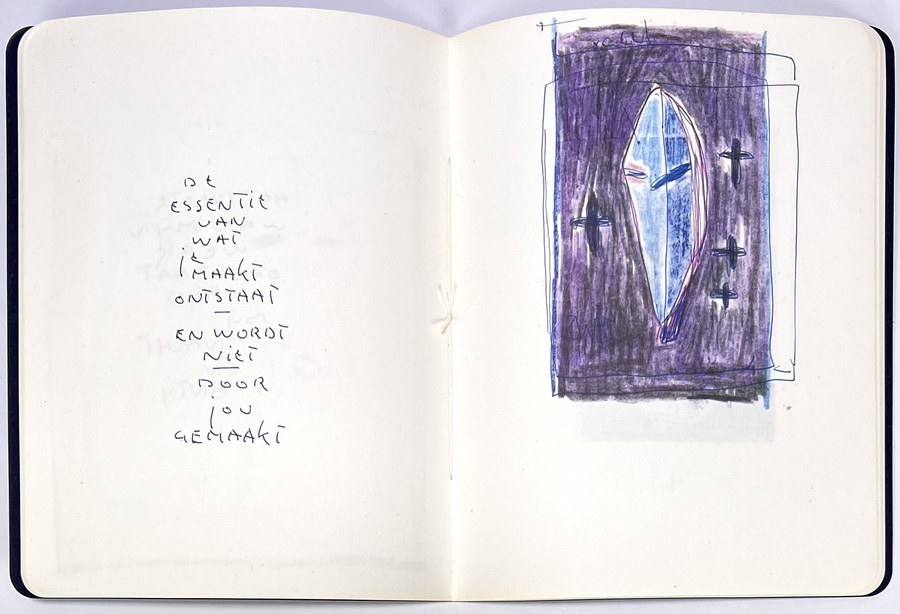 DE
ESSENTIE
VAN
WAT
JE
MAAKT
ONTSTAAT
—
EN WORDT
NIET
DOOR
JOU
GEMAAKT